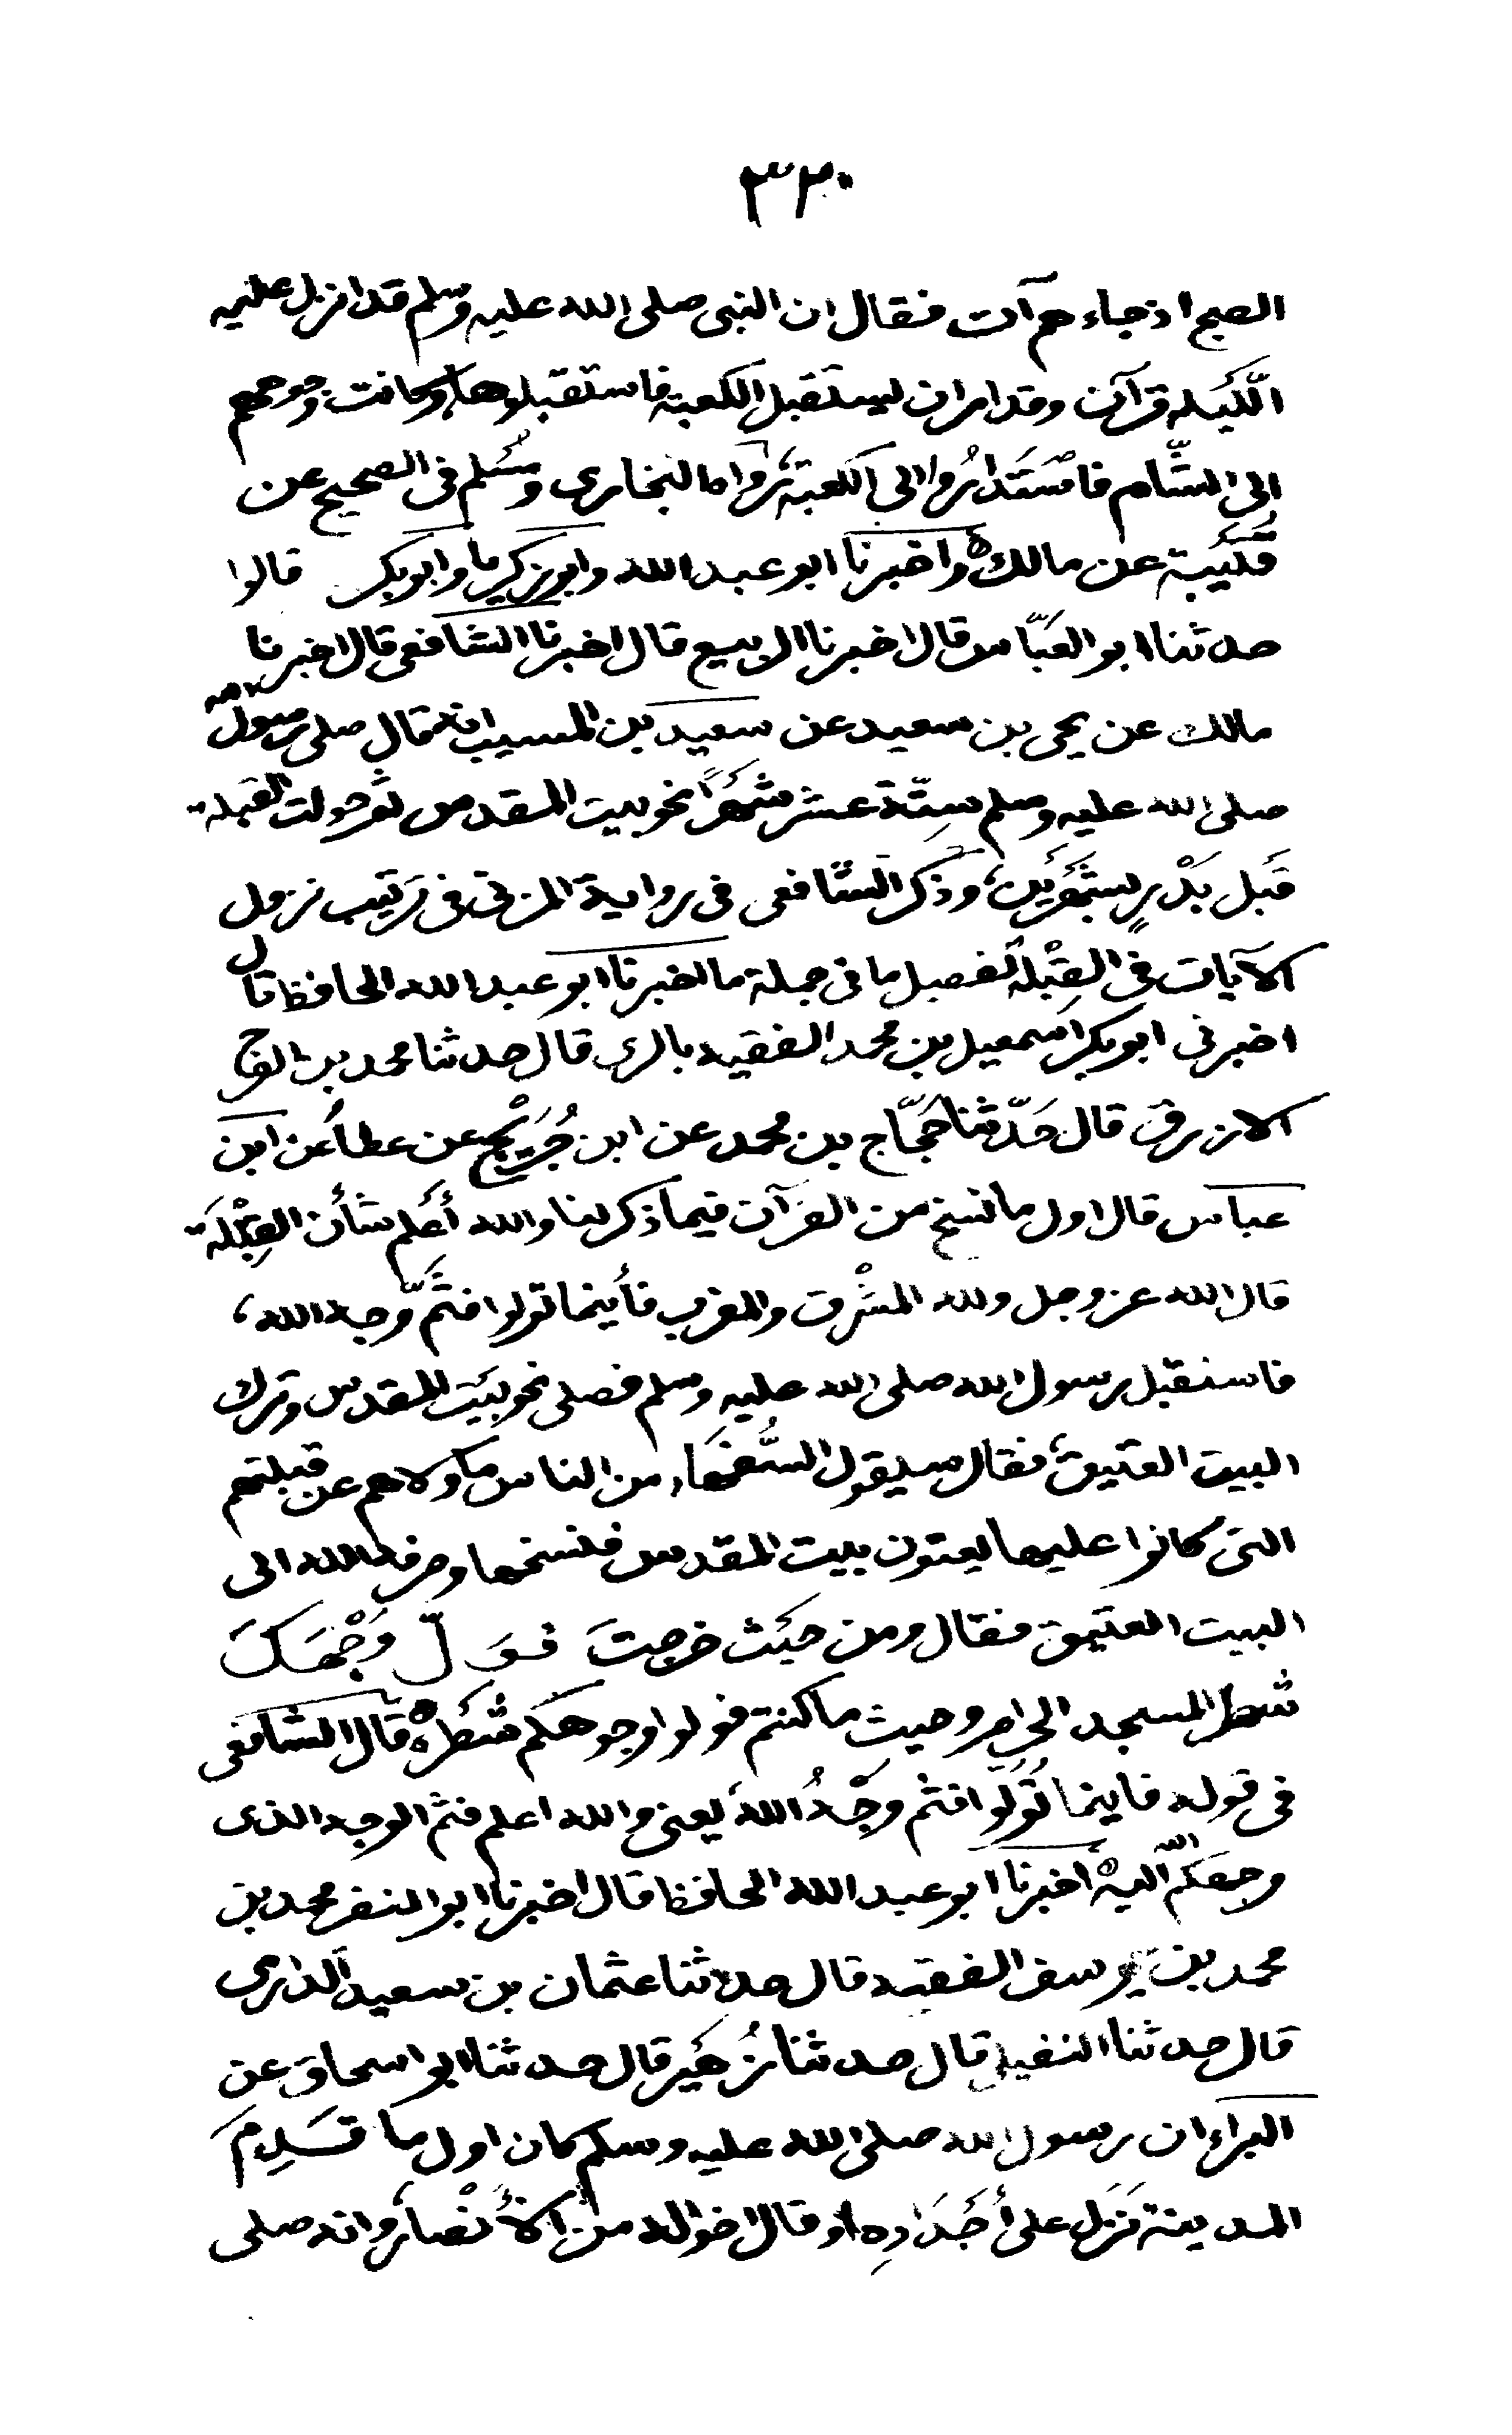 ٣٢٠
الصبح اذ جاءهم آت فقال ان النبى صلى الله عليه وسلم قد انزل عليه
اللَّيَلة قرآن وقد امر ان يستَقبل الكعبة فاستقبلوها وكانت وجوههم
الى الشّام فاسْتَدارُوا الى الكعبة، رواه البخارى ومُسْلم فى الصحيح عن
قُتَيْبة عن مالك ه واخبرنا ابو عبد الله وابو زكريا وابو بكر قالوا
حدثنا ابو العبّاس قال اخبرنا الربيع قال اخبرنا الشافعى قال اخبرنا
مالك عن يحيى بن سعيد عن سعيد بن المسيب انه قال صلى رسول الله
صلى الله عليه وسلم سِتّة عشر شَهْرًا نحو بيت المقدس ثم حولت القبلة
قَبل بَدْرٍ بشَهْرَيْن، وذكر الشّافعى فى رواية المزنى فى ترتيب نزول
الآيات فى القِبْلة تفصيل ما فى جملة ما اخبرنا ابو عبد الله الحافظ قال
اخبرنى ابو بكر اسمعيل بن محمد الفقيه بالرى قال حدثنا محمد بن الفرج
الازرق قال حَدّثنا حَجّاج بن محمد عن ابن جُرَيْج عن عطاء عن ابن
عباس قال اول ما نسخ من القرآن فيما ذكر لنا والله أعْلم شأن القِبْلَة
قال الله عز وجل ولله المشْرق والمغرب فأينما تولوا فثَمَّ وجه الله،
فاستقبل رسول الله صلى الله عليه وسلم فصلى نحو بيَت المقدس وترك
البيت العتيق، فقال سيقول السُّفَهَاء من الناس ما ولاهم عن قبلتهم
التى كانوا عليها يعنون بيت المقدس فنسخها وصرفه الله الى
البيت العتيق فقال ومن حيَث خرجتَ فوَلّ وَجْهَكَ
شطر المسجد الحرام وحيث ما كنتم فولوا وجوهكم شَطْره ه قال الشافعى
فى قوله فاينما تُوَلّوا فثم وَجْهُ الله، يعنى والله اعلم فثم الوجه الذى
وجهكم الله اليه ه اخبرنا ابو عبد الله الحافظ قال اخبرنا ابو النضر محمد بن
محمد بن يوسف الفقيه قال حدثنا عثمان بن سعيد الدارمى
قال حدثنا النفيلى قال حدثنا زُهَيْر قال حدثنا ابو اسحاق عن
البراء ان رسول الله صلى الله عليه وسلم كان اول ما قَدِمَ
المدينة نَزَل على أَجْدَادِه او قال اخواله من الأَنْصار، وانه صلى